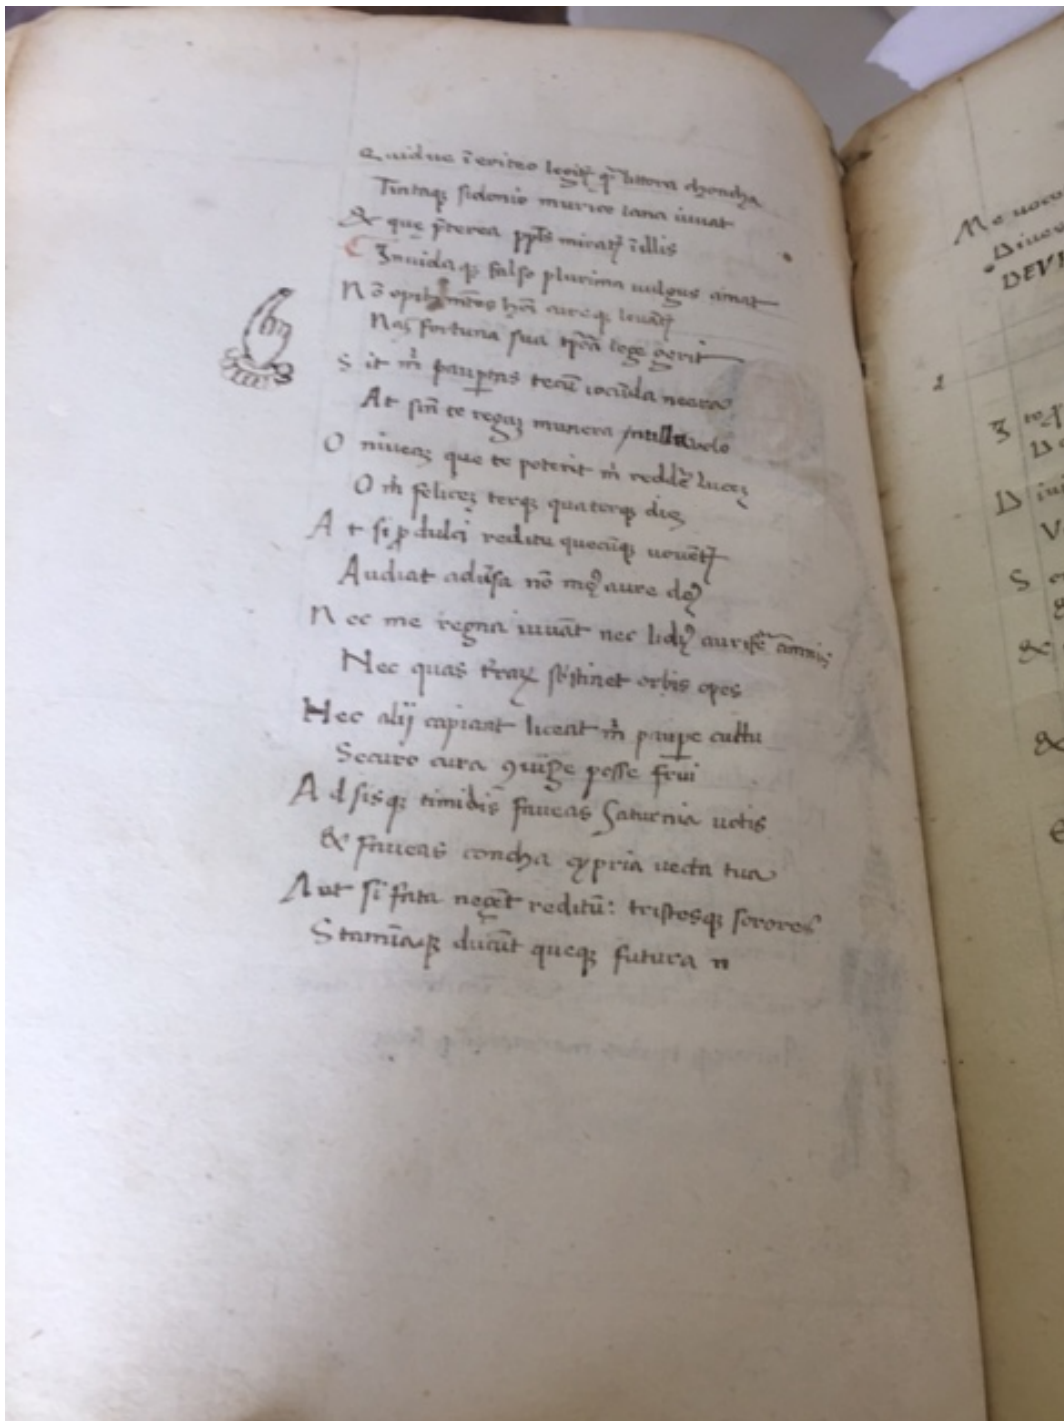 Quidve ĩ eritreo legit᷑ q̃ littora choncha
Tintaq; sidonio murice lana iuuat
& que p̃terea pp̃ls mirat᷑ ĩ illis
Inuida q; falso plurima uulgus amat
Nõ opib; hõm cureq; leuãt᷑
Naʒ fortuna sua tp̃oa lege gerit
Sit m̃ paup̲tas tecũ iocũda neera
At sin̄ te regaʒ munera uelo
O niueaʒ que te poterit m̃ redde᷑ luceʒ
O m̃ feliceʒ terq; quaterq; dieʒ
At si ꝓ dulci reditu quecũq; uouent᷑
Audiat adũsa nõ meꝰ aure deꝰ
Nec me regna iuuãt nec lidiꝰ aurifẽ amnis
Nec quas t̃raꝝ sustinet orbis opes
Hec alij capiant liceat m̃ paup̲e cultu
Securo cara ꝯiuge posse frui
Adsisq; timidis faueas Saturnia uotis
& faueas concha cypria uecta tua
Aut si fata negẽt reditũ: tristesq; sorores
Stamĩa q; ducũt queq; futura n
Me uoca
Diues